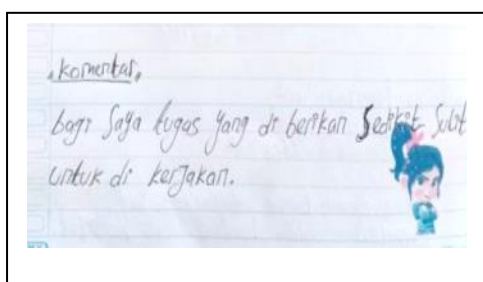 .komentar,
bagi saya tugas yang di berikan Sedikit Sulit
untuk di kerjakan.